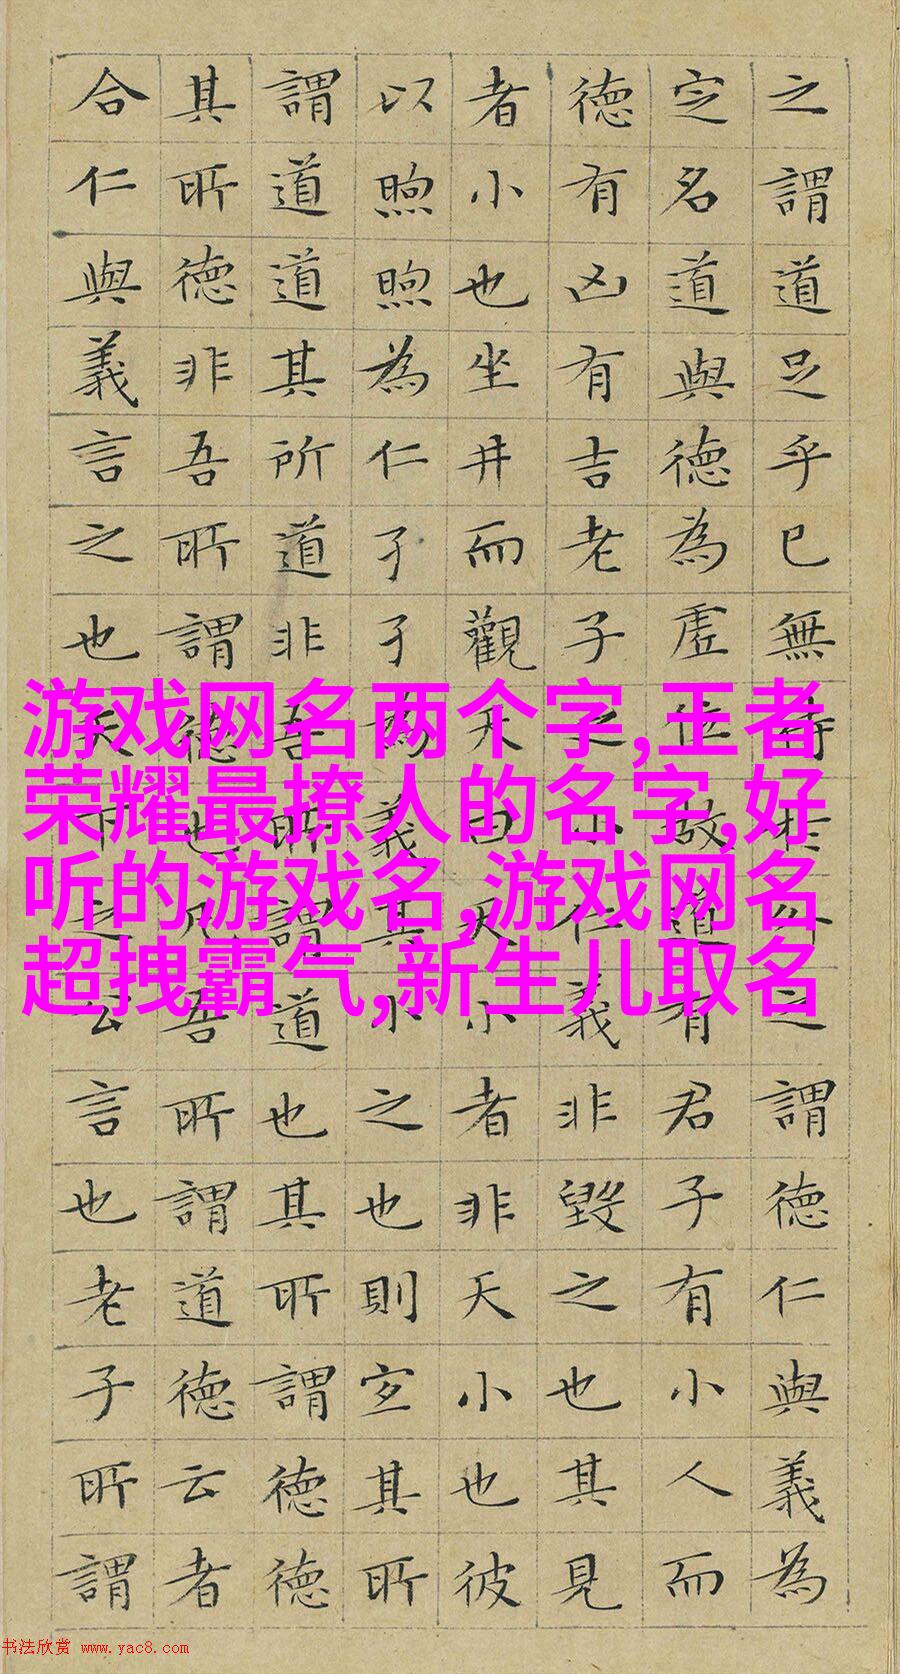 之謂道足乎已無待於外之謂德仁與義為
定名道與德為虛位故道有君子有小人而
德有凶有吉老子之小仁義非毀之也其見
者小也坐井而觀天曰天小者非天小也彼
以煦煦為仁孑孑為義其小之也則宜其所
謂道道其所道非吾所謂道也其所謂德德
其所德非吾所謂德也凡吾所謂道德云者
合仁與義言之也天下之公言也老子所謂
游戏网名两个字,王者
荣耀最撩人的名字,好
听的游戏名,游戏网名
超拽霸气,新生儿取名
书法欣赏 www.yac8.com